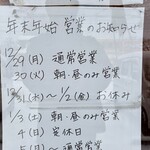 年末年始 営業のお知らせ
12/29(月) 通常営業
30(火) 朝・昼のみ営業
12/31(水)～1/2(金) お休み
1/3(土) 朝・昼のみ営業
4(日) 定休日
5(月)～ 通常営業